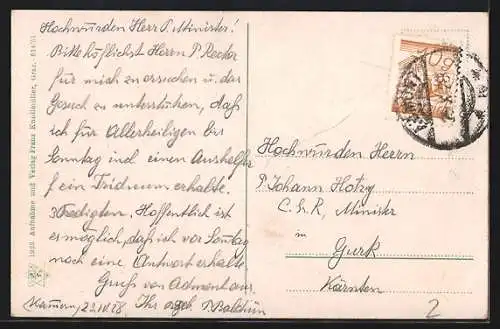 Hochwürden Herr P. Minister!
Bitte höflichst Herrn P. Rector
für mich zu ersuchen u. das
Gesuch zu unterstützen, daß
ich für Allerheiligen bis
Sonntag incl einen Aushelfer
f ein Triduum erhalte.
3 Predigten, Hoffentlich ist
es möglich, daß ich vor Sonntag
noch eine Antwort erhalte
Gruß von
Ihr ergeb. P. Balduin
Hochwürden Herrn
P. Johann Hotzy
Minister
in
Gurk
Kärnten
2
1928 Aufnahme und Verlag Franz Knollmüller, Graz.